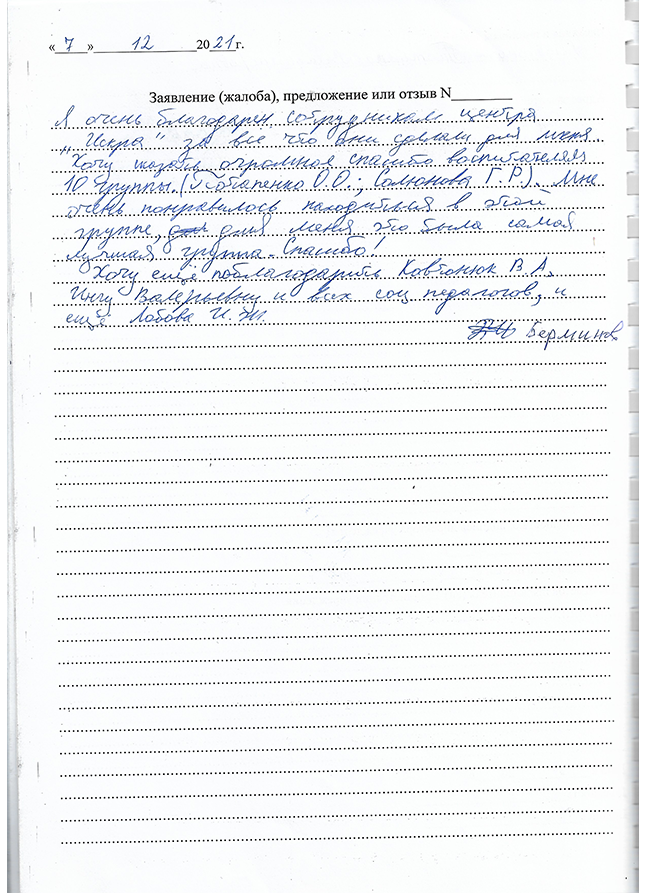 « 7 » 12 2021 г.
Заявление (жалоба), предложение или отзыв N
Я очень благодарен сотрудникам центра
„Искра" за все что они сделали для меня.
Хочу сказать огромное спасибо воспитателям
10 группы. (Потапенко О.О.; Салюнова Г.Р). Мне
очень понравилось находиться в этой
группе, для меня это была самая
лучшая группа. Спасибо!
Хочу ещё поблагодарить Ковтонюк В.А,
Ингу Валерьевну и всех соц педагогов, и
ещё Лобова И.
Берминов